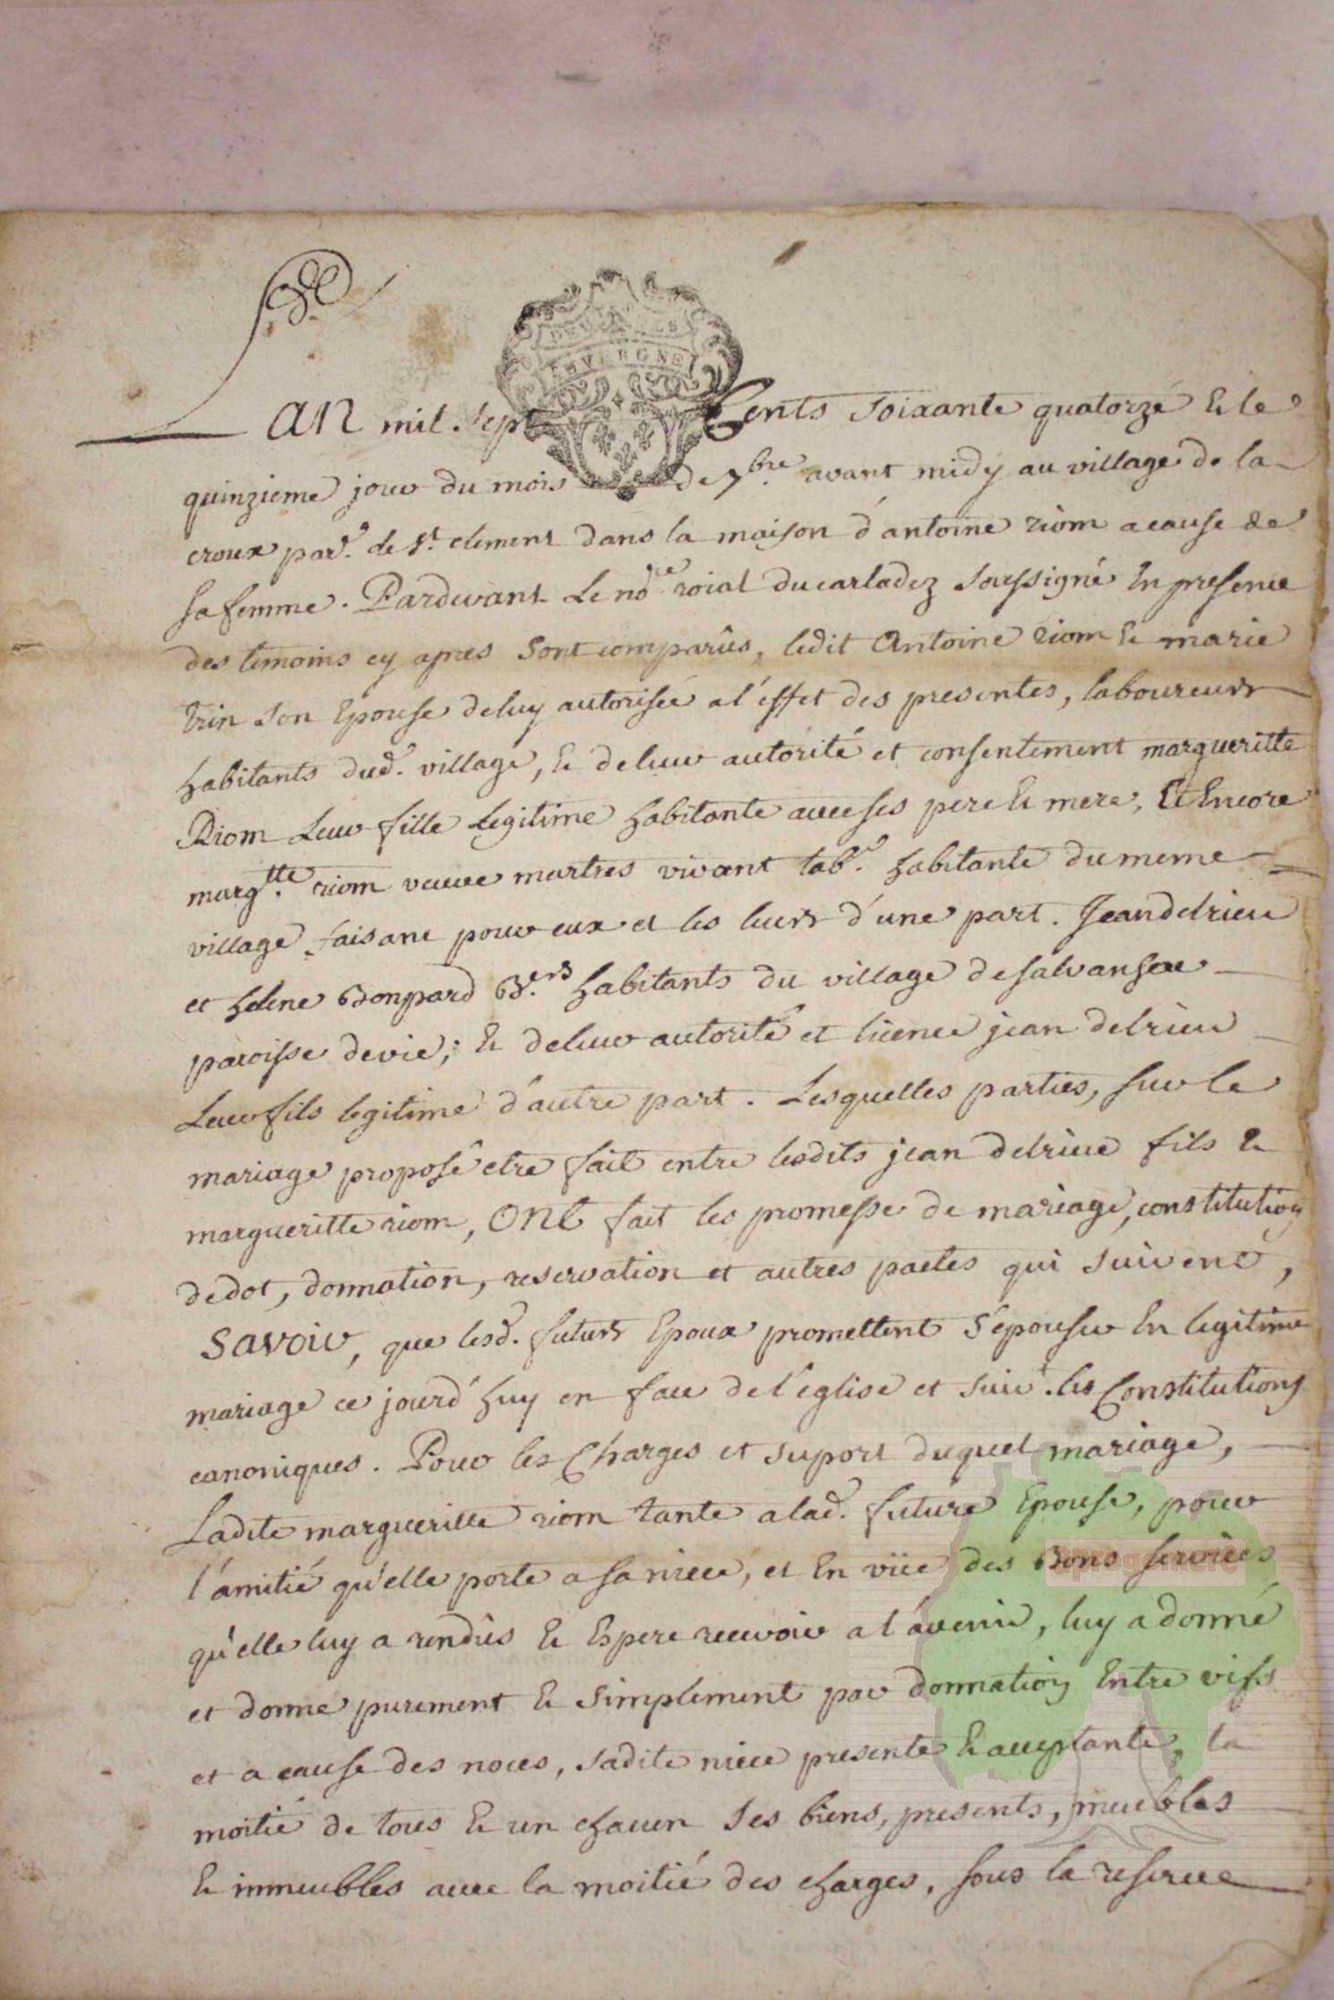 DEUX SOLS
AUVERGNE
L'AN mil sept Cents soixante quatorze & le
quinzieme jour du mois de 7bre. avant midy au village de la
croux par. de St. clement dans la maison d'antoine riom a cause de
sa femme. Pardevant Le no.re roial du carladez soussigné En presence
des temoins cy apres Sont comparûs, ledit Antoine riom & marie
trin son Epouse de luy autorisée a l'effet des presentes, laboureurs
habitants dud. village, & de leur autorité et consentement margueritte
Riom Leur fille Legitime habitante avec ses pere & mere, Et Encore
marg.tte riom veuve martres vivant lab.r habitante du meme
village faisant pour eux et les leurs d'une part. Jean delrieu
et helene Bonpard B.ers habitants du village de salvanhac
paroisse de vic; & de leur autorité et licence jean delrieu
Leur fils legitime d'autre part. Lesquelles parties, sur le
mariage proposé etre fait entre lesdits jean delrieu fils &
margueritte riom, ONt fait les promesse de mariage, constitution
de dot, donnation, reservation et autres pactes qui suivent,
SAVOIR, que lesd. futurs Epoux promettent S'épouser En legitime
mariage ce jourd'huy en face de l'église et suiv.t les Constitutions
canoniques. Pour les Charges et suport duquel mariage,
Ladite margueritte riom tante a lad. future Epouse, pour
l'amitié qu'elle porte a sa niece, et En vüe des Bons services
qu'elle luy a rendûs & Espere recevoir a l'avenir, luy a donné
et donne purement & simplement par donnation Entre vifs
et a cause des noces, sadite niece presente & acceptante, la
moitié de tous & un chacun ses biens, presents, meubles
& immeubles avec la moitié des charges, sous la reserve